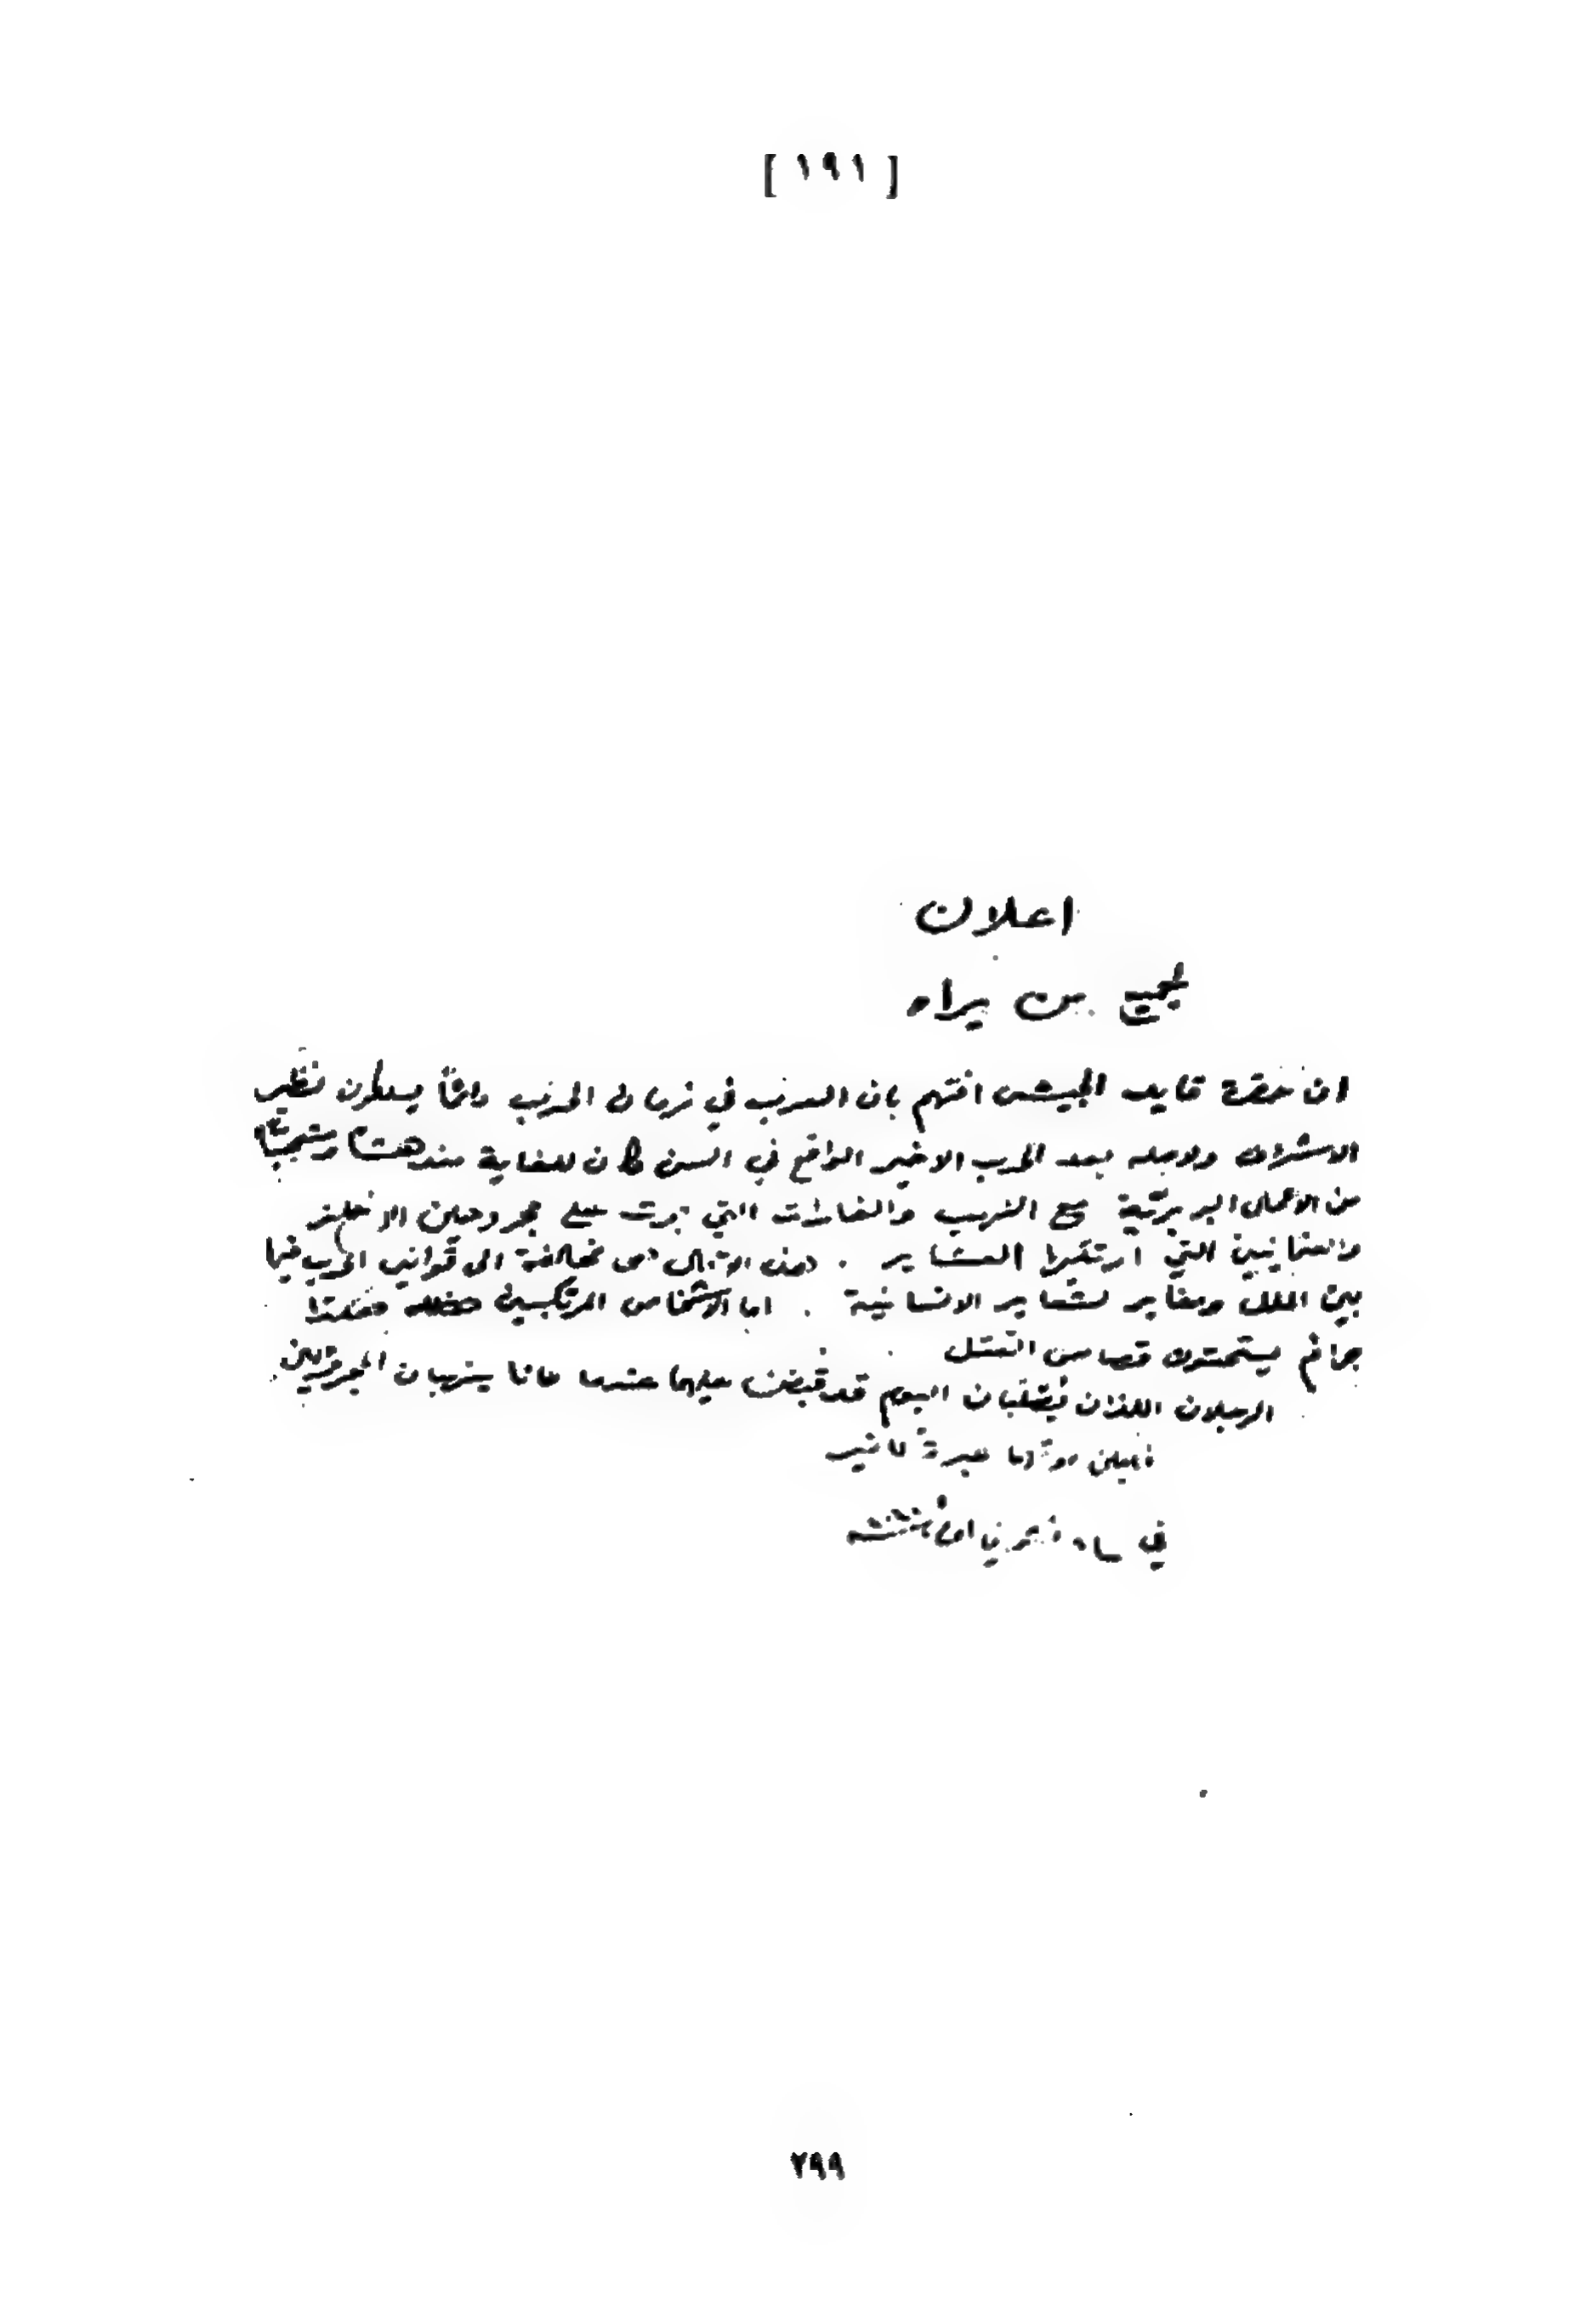 [ ١٩١ ]
اعلان
لجميع من يراه
ان حضرة قايد الجيش افتهم بان العرب في زمان الحرب دائماً يسلكون نظير
الاشراف ولاجله بعد الحرب الاخير الواقع في السن كان للغاية مندهشا
من الاعمال البربريّة مع النهب والغارات التي جرت على مجروحين الانكليز
والعثمانيين التي ارتكبها العشاير . الى قوانين الحرب فيما
بين الملل ومغاير لشعاير الانسانية . اما الاشخاص المرتكبين هكذا
جرائم يستحقون قصاص القتل
الرجلان اللذان اليوم قد قبض عليهما عندما كانا ينهبان المجروحين
عبرة للغير
في
٢٩٩